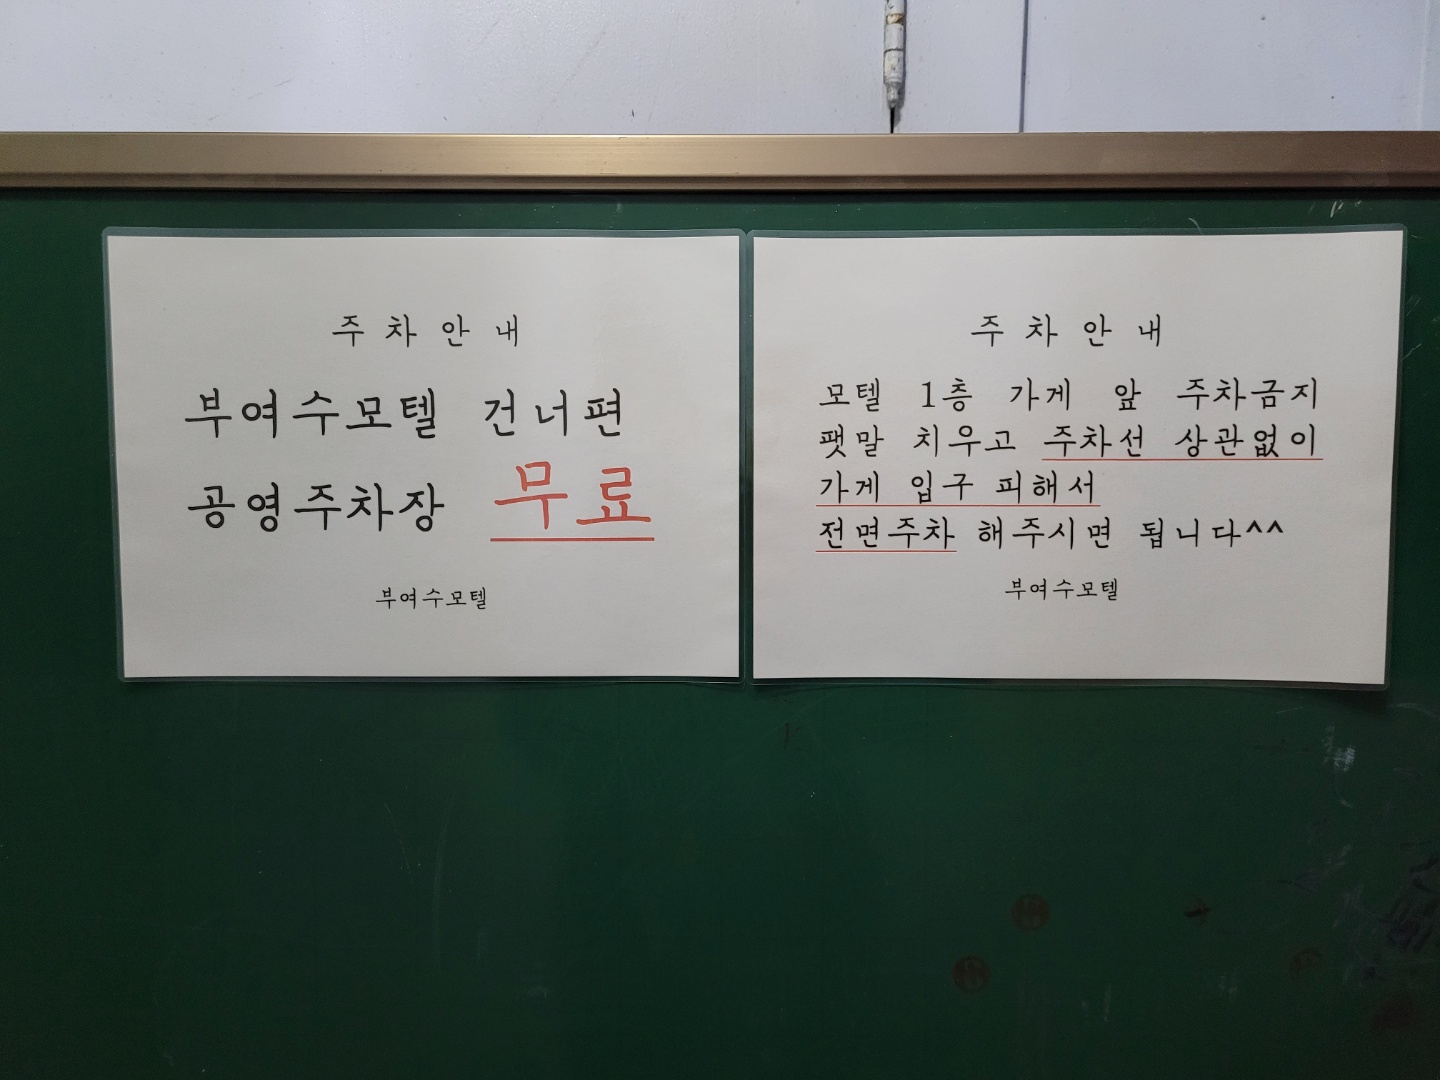 주 차 안 내
부여수모텔 건너편
공영주차장 무료
부여수모텔
주 차 안 내
모텔 1층 가게 앞 주차금지
팻말 치우고 주차선 상관없이
가게 입구 피해서
전면주차 해주시면 됩니다^^
부여수모텔